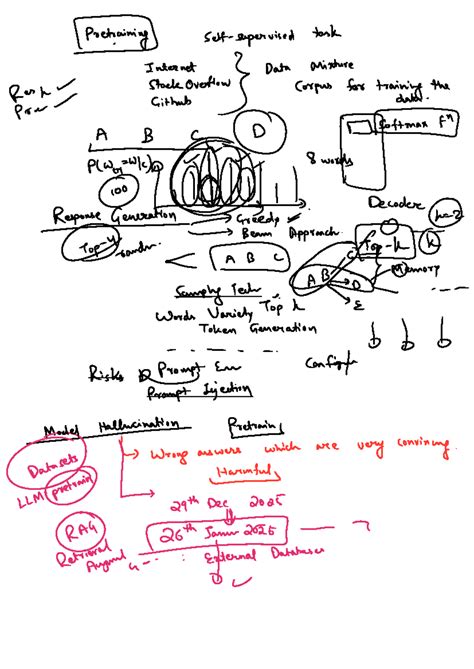 Pretraining
Self-supervised task
Internet
StackOverflow
Github
Data Mixture
Corpus for training the data.
A B C D
Softmax Fⁿ
8 words
P(w =w|c)
100
Response Generation
Greedy
Beam Approach
Decoder
k=2
Top-4
random
A B C
Top-k
k
A B C D E
Memory
Sampling Tech
Words Variety Top k
Token Generation
Risks
Prompt Em
Prompt Injection
Config
Model Hallucination Pretrain
Datasets
Wrong answers which are very convincing.
LLM pretrain
Harmful
29th Dec 2025
RAG
26th Janu 2025
Retrieval
External Databases